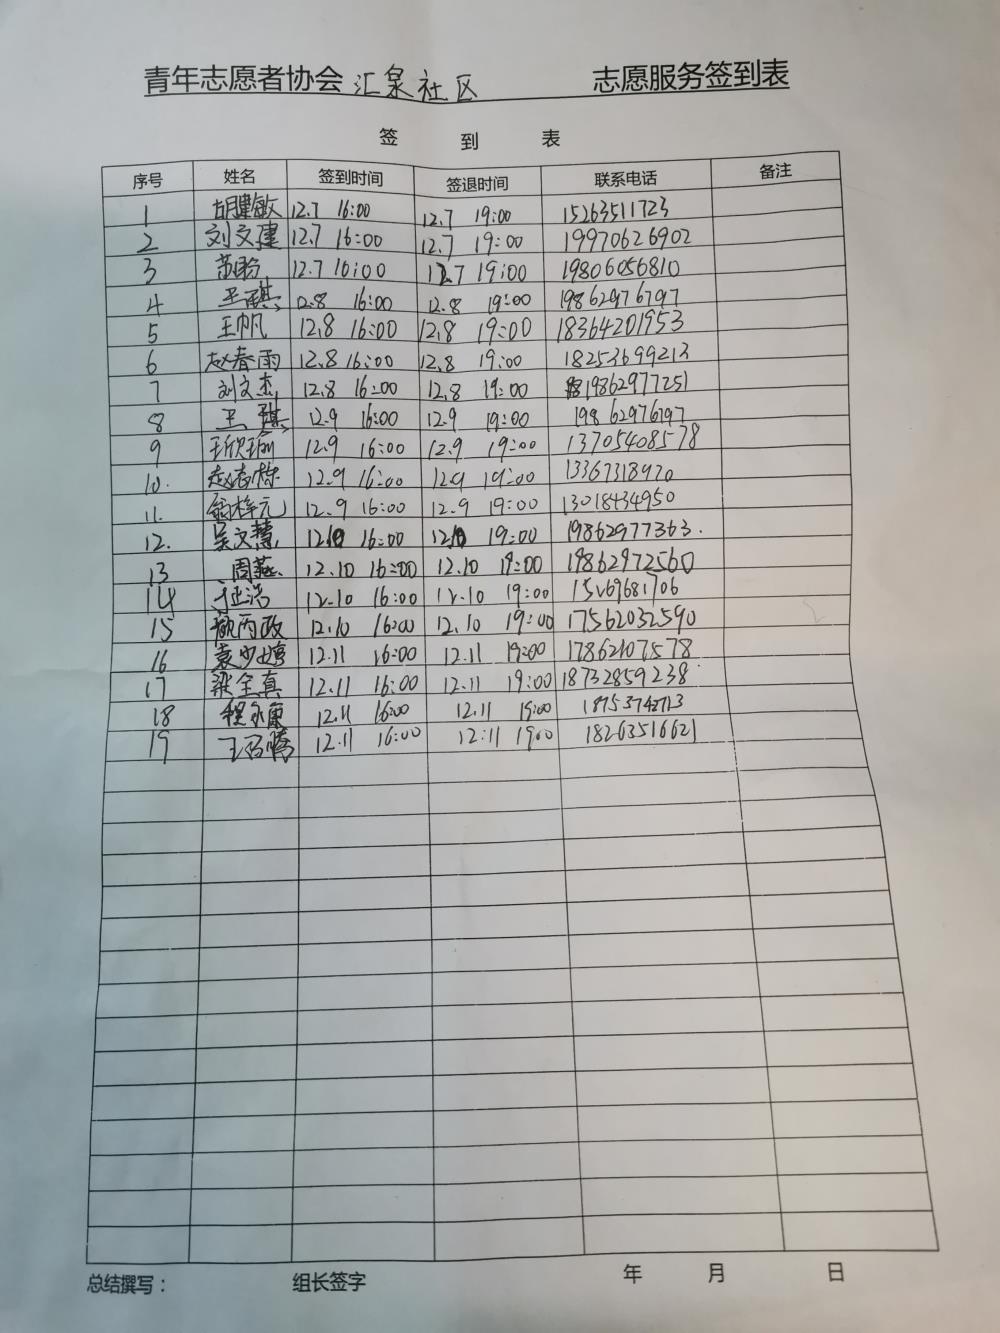 青年志愿者协会 汇泉社区 志愿服务签到表
签 到 表
序号 姓名 签到时间 签退时间 联系电话 备注
1 胡建敏 12.7 16:00 12.7 19:00 15263511723
2 刘文建 12.7 16:00 12.7 19:00 19970626902
3 12.7 16:00 12.7 19:00 19806056810
4 王祺 12.8 16:00 12.8 19:00 19862976797
5 王帆 12.8 16:00 12.8 19:00 18364201953
6 赵春雨 12.8 16:00 12.8 19:00 18253699213
7 刘文杰 12.8 16:00 12.8 19:00 19862977251
8 王祺 12.9 16:00 12.9 19:00 19862976797
9 12.9 16:00 12.9 19:00 13705408578
10. 赵志栋 12.9 16:00 12.9 19:00 13367318970
11. 12.9 16:00 12.9 19:00 13018434950
12. 吴文慧 12.10 16:00 12.10 19:00 19862977363.
13 周燕 12.10 16:00 12.10 19:00 19862972560
14 12.10 16:00 12.10 19:00 15269681706
15 12.10 16:00 12.10 19:00 17562032590
16 袁少婷 12.11 16:00 12.11 19:00 17862107578
17 梁全真 12.11 16:00 12.11 19:00 18732859238
18 程永康 12.11 16:00 12.11 19:00
19 12.11 16:00 12.11 19:00 18263516621
总结撰写： 组长签字 年 月 日